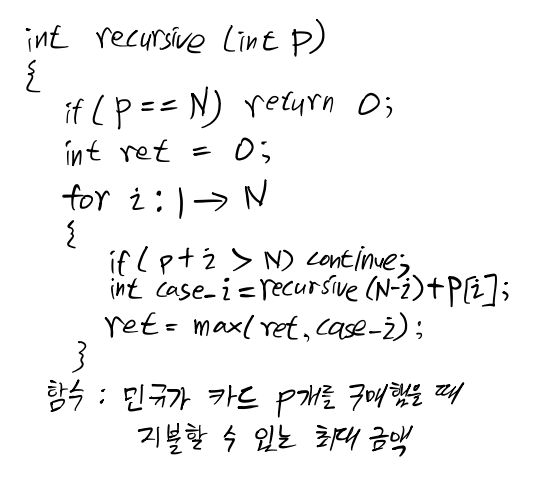 int recursive (int p)
{
if( p == N) return 0;
int ret = 0;
for i : 1 → N
{
if( p + i > N) continue;
int case_i = recursive (N-i) + P[i];
ret = max( ret, case_i );
}
함수 : 민규가 카드 p개를 구매했을 때
지불할 수 있는 최대 금액